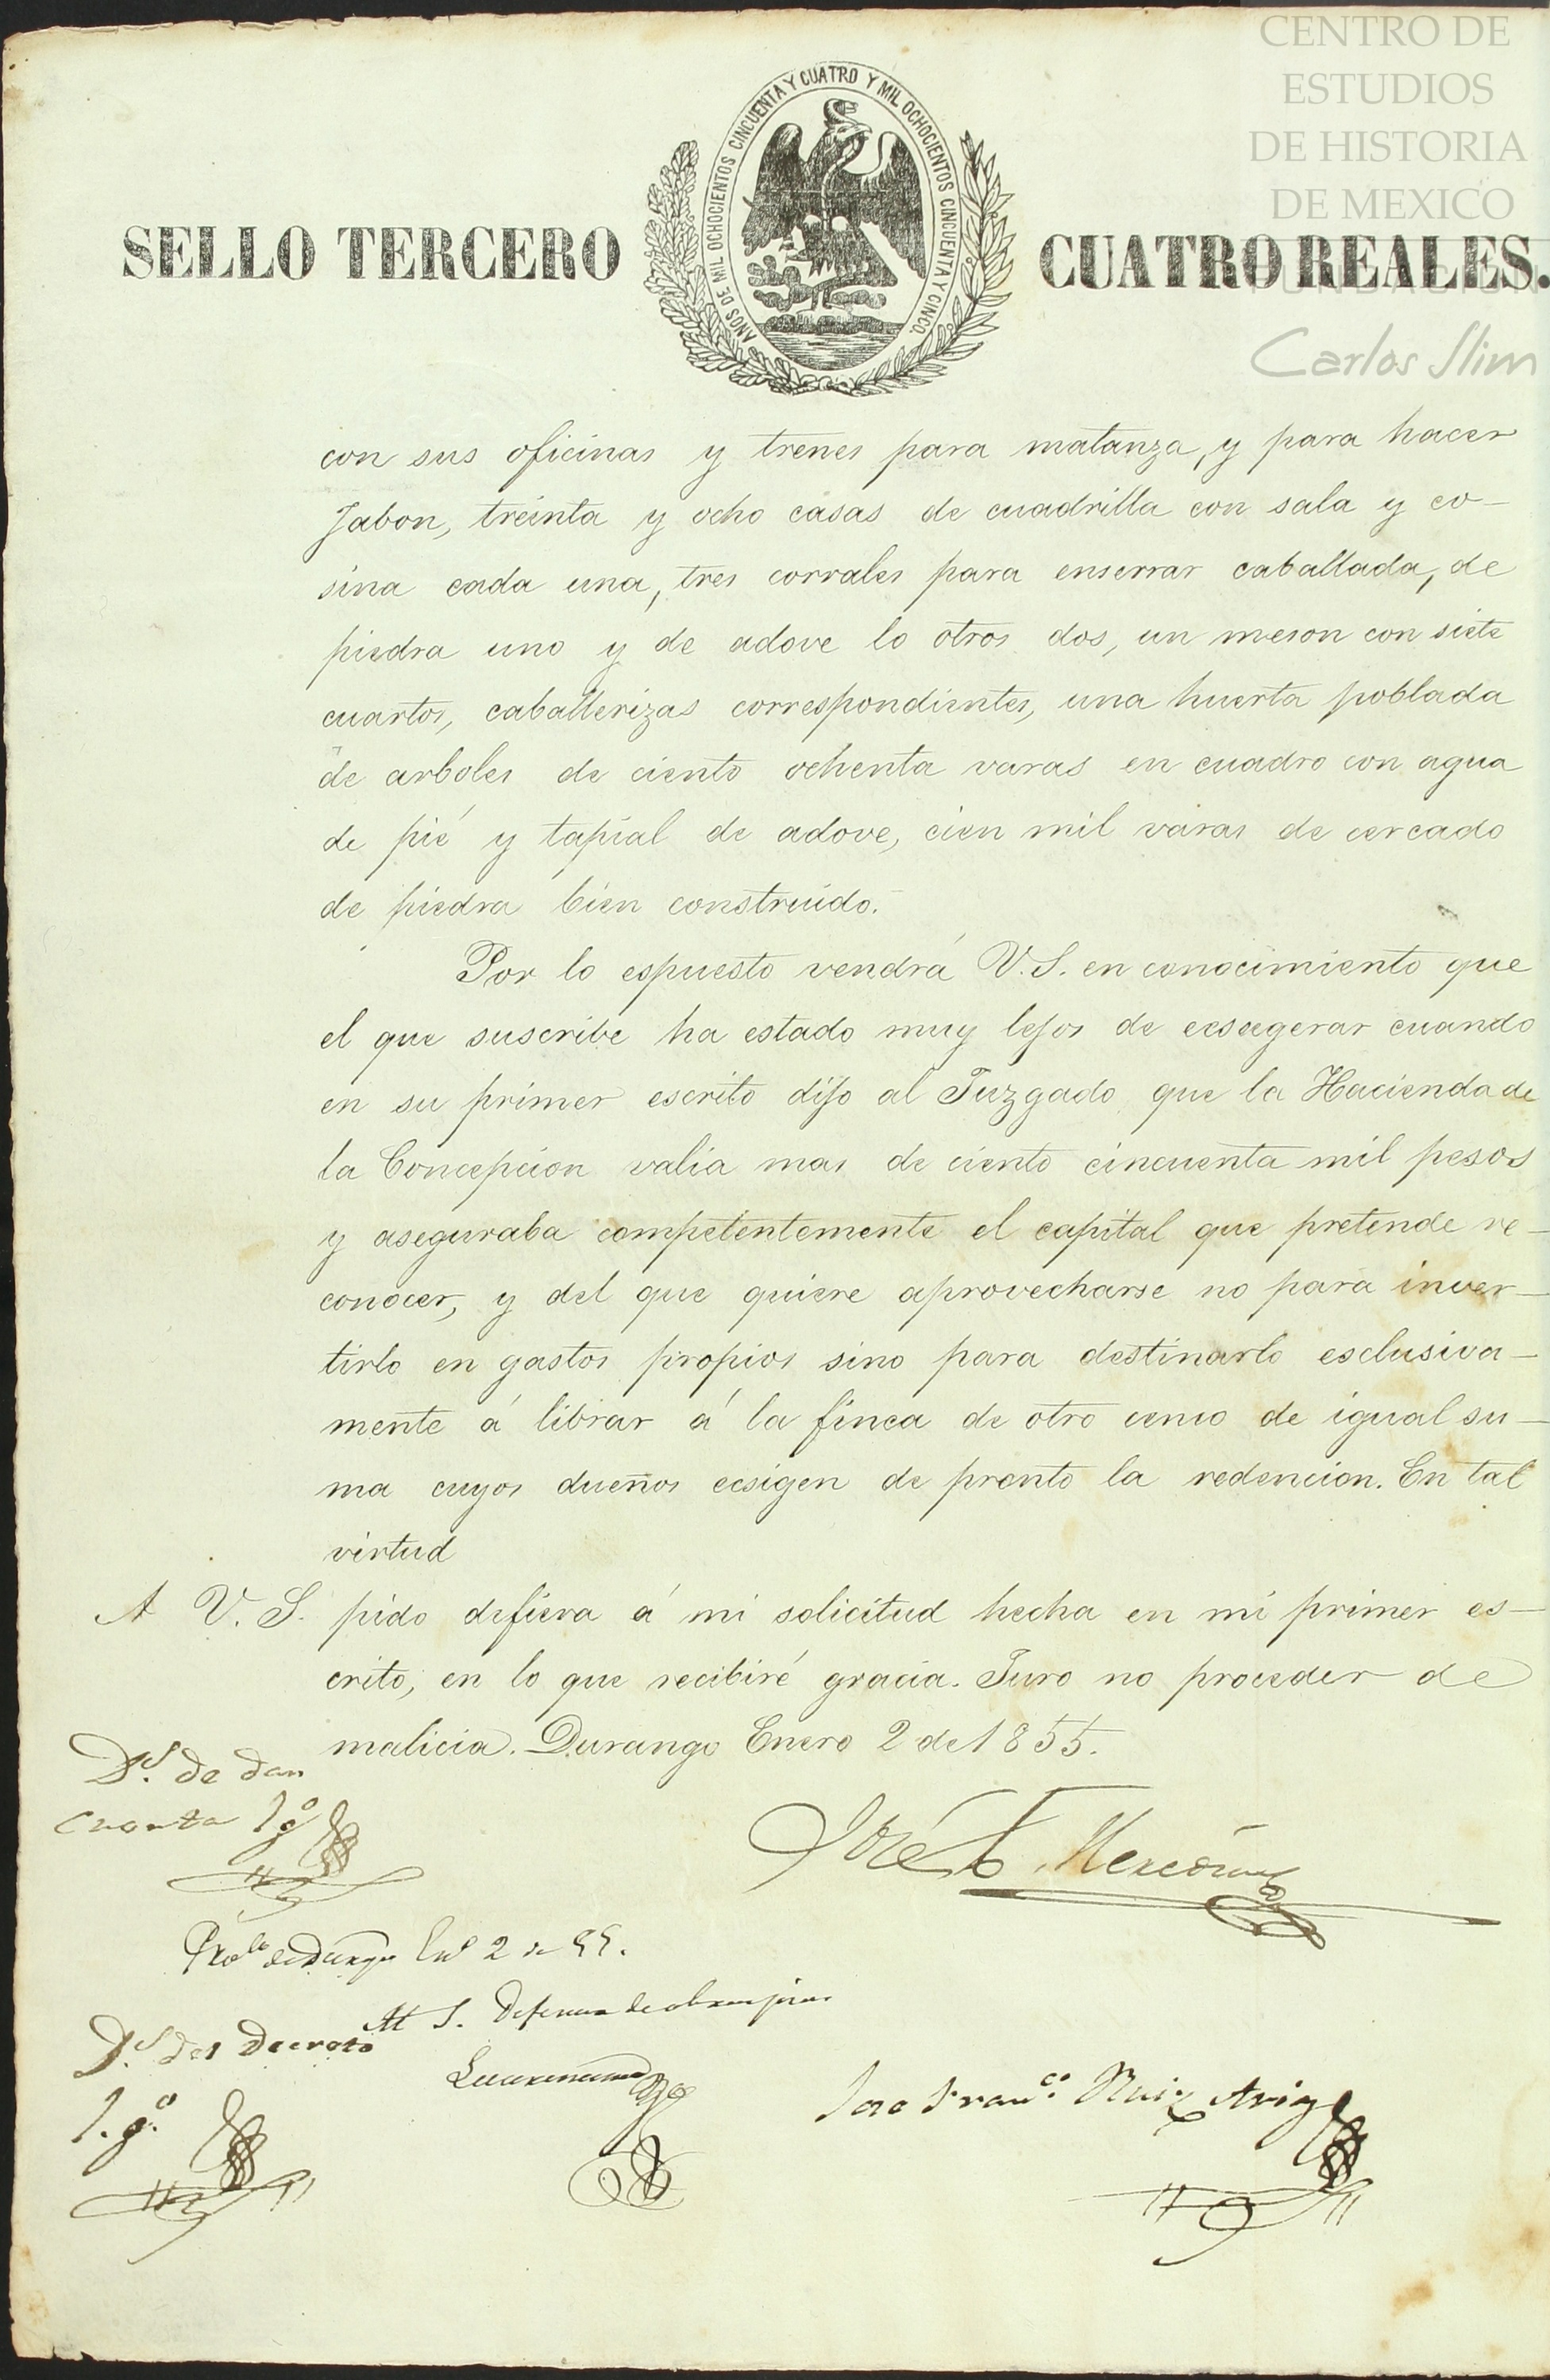 CENTRO DE
ESTUDIOS
DE HISTORIA
DE MEXICO
FUNDACION
Carlos Slim
SELLO TERCERO
AÑOS DE MIL OCHOCIENTOS CINCUENTA Y CUATRO Y MIL OCHOCIENTOS CINCUENTA Y CINCO.
CUATRO REALES.
con sus oficinas y trenes para matanza, y para hacer
Jabon, treinta y ocho casas de cuadrilla con sala y co-
sina cada una, tres corrales para enserrar caballada, de
piedra uno y de adove lo otros dos, un meson con siete
cuartos, caballerizas correspondientes, una huerta poblada
de arboles de ciento ochenta varas en cuadro con agua
de pié y tapial de adove, cien mil varas de cercado
de piedra bien construido.
Por lo espuesto vendrá V.S. en conocimiento que
el que suscribe ha estado muy lejos de ecsagerar cuando
en su primer escrito dijo al Juzgado que la Hacienda de
la Concepcion valia mas de ciento cincuenta mil pesos
y aseguraba competentemente el capital que pretende re-
conocer, y del que quiere aprovecharse no para inver-
tirlo en gastos propios sino para destinarlo esclusiva-
mente á librar á la finca de otro censo de igual su-
ma cuyos dueños ecsigen de pronto la redencion. En tal
virtud
A V. S. pido defiera á mi solicitud hecha en mi primer es-
crito, en lo que recibiré gracia. Juro no proceder de
malicia. Durango Enero 2 de 1855.
Ds. de dar
cuenta 1 go
José F.
Enº 2 de 55.
Al S. Defensor de obras pias
Ds. del Decreto
1. go.
José Franco. Ruiz